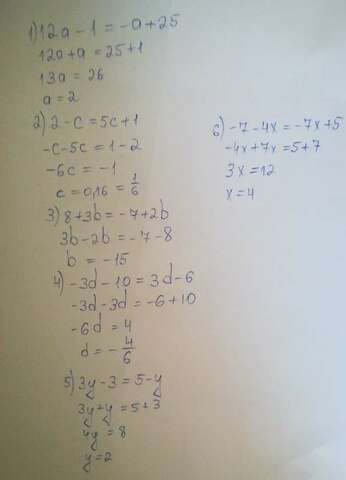 1) 12a - 1 = -a + 25
12a + a = 25 + 1
13a = 26
a = 2
2) 2 - c = 5c + 1
-c - 5c = 1 - 2
-6c = -1
c = 0,16 = 1/6
3) 8 + 3b = -7 + 2b
3b - 2b = -7 - 8
b = -15
4) -3d - 10 = 3d - 6
-3d - 3d = -6 + 10
-6d = 4
d = - 4/6
5) 3y - 3 = 5 - y
3y + y = 5 + 3
4y = 8
y = 2
6) -7 - 4x = -7x + 5
-4x + 7x = 5 + 7
3x = 12
x = 4